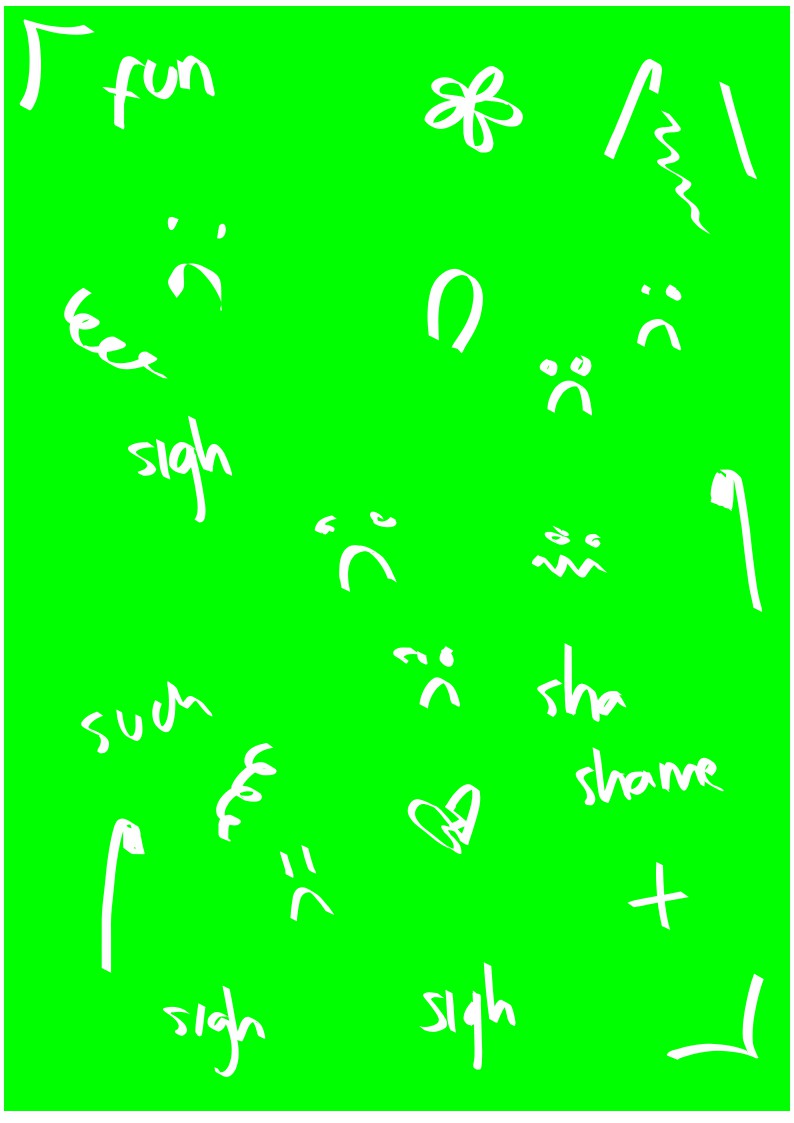 fun
sigh
such
sha
shame
sigh
sigh